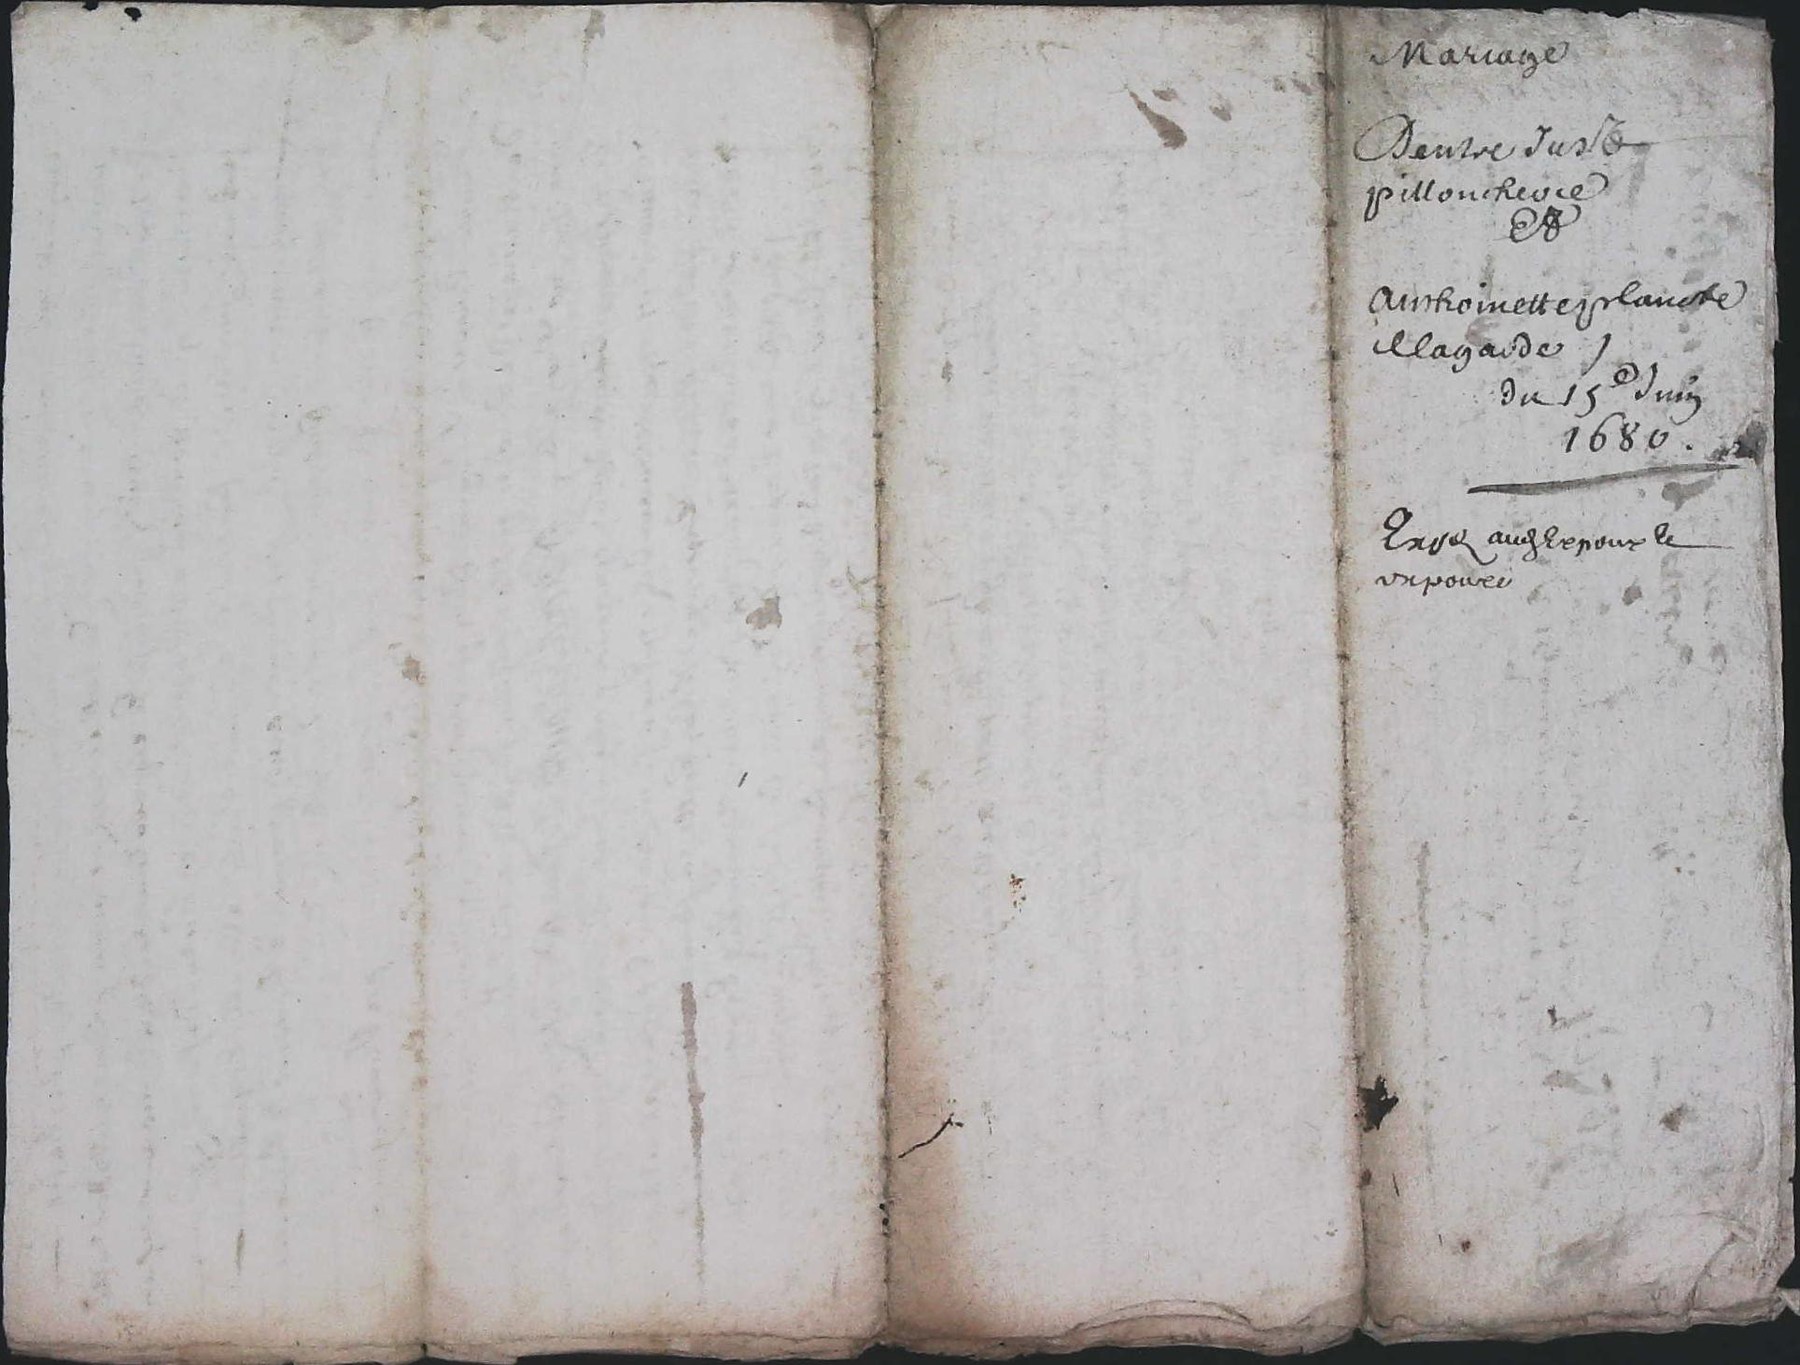 Mariage
Dentre Just
pillonchevie
Et
Anthoinette planche
llagarde
du 15e Juin
1680.
pour le